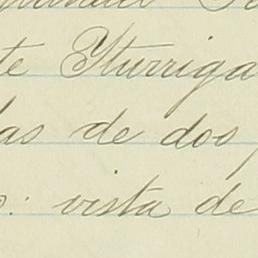 te Yturriga
das de dos
o: vista de